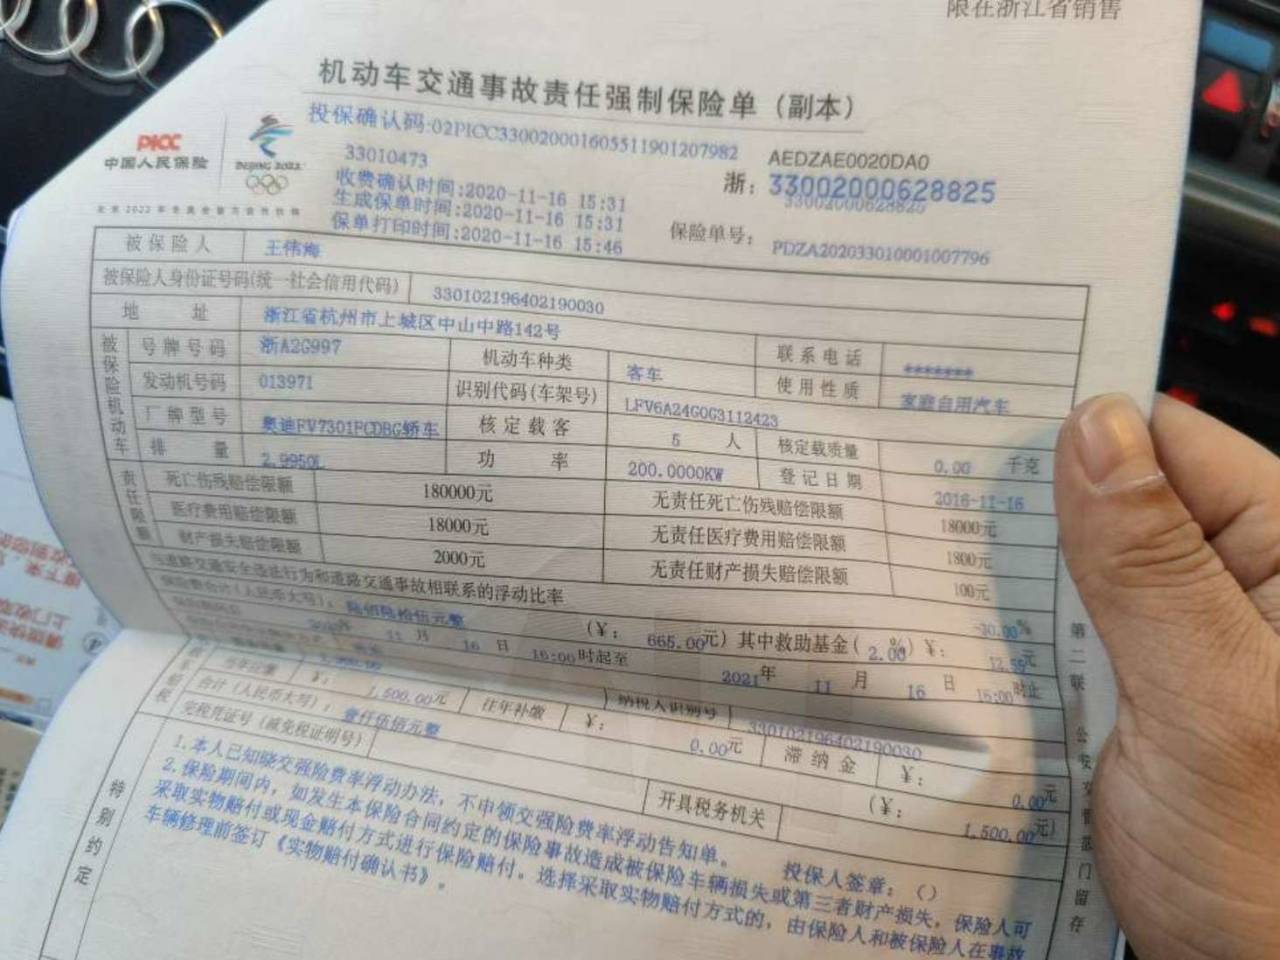 限在浙江省销售
机动车交通事故责任强制保险单（副本）
PICC
中国人民保险
BEIJING 2022
北京2022年冬奥会官方合作伙伴
投保确认码:02PICC330020001605511901207982
33010473
收费确认时间:2020-11-16 15:31
生成保单时间:2020-11-16 15:31
保单打印时间:2020-11-16 15:46
AEDZAE0020DA0
浙: 33002000628825
33002000628825
保险单号: PDZA202033010001007796
被保险人 王伟梅
被保险人身份证号码(统一社会信用代码) 330102196402190030
地址 浙江省杭州市上城区中山中路142号 联系电话 *******
被保险机动车
号牌号码 浙A2G997 机动车种类 客车 使用性质 家庭自用汽车
发动机号码 013971 识别代码(车架号) LFV6A24G0G3112423
厂牌型号 奥迪FV7301FCDBG轿车 核定载客 5 人 核定载质量 0.00 千克
排量 2.9950L 功率 200.0000KW 登记日期 2016-11-16
责任限额
死亡伤残赔偿限额 180000元 无责任死亡伤残赔偿限额 18000元
医疗费用赔偿限额 18000元 无责任医疗费用赔偿限额 1800元
财产损失赔偿限额 2000元 无责任财产损失赔偿限额 100元
与道路交通安全违法行为和道路交通事故相联系的浮动比率 -30.00%
保险费合计(人民币大写): 陆佰陆拾伍元整 (¥: 665.00元) 其中救助基金( 2.00 %) ¥: 12.55元
11 月 16 日 16:00时起至 2021年 11 月 16 日 16:00时止
当年应缴 ¥: 1,500.00元 往年补缴 ¥: 0.00元 滞纳金 ¥: 0.00元
纳税人识别号 330102196402190030
合计(人民币大写): 壹仟伍佰元整 (¥: 1,500.00元)
完税凭证号(减免税证明号) 开具税务机关
特别约定
1.本人已知晓交强险费率浮动办法，不申领交强险费率浮动告知单。 投保人签章：（）
2.保险期间内，如发生本保险合同约定的保险事故造成被保险车辆损失或第三者财产损失，保险人可
采取实物赔付或现金赔付方式进行保险赔付。选择采取实物赔付方式的，由保险人和被保险人在事故
车辆修理前签订《实物赔付确认书》。
第二联 公安交管部门留存